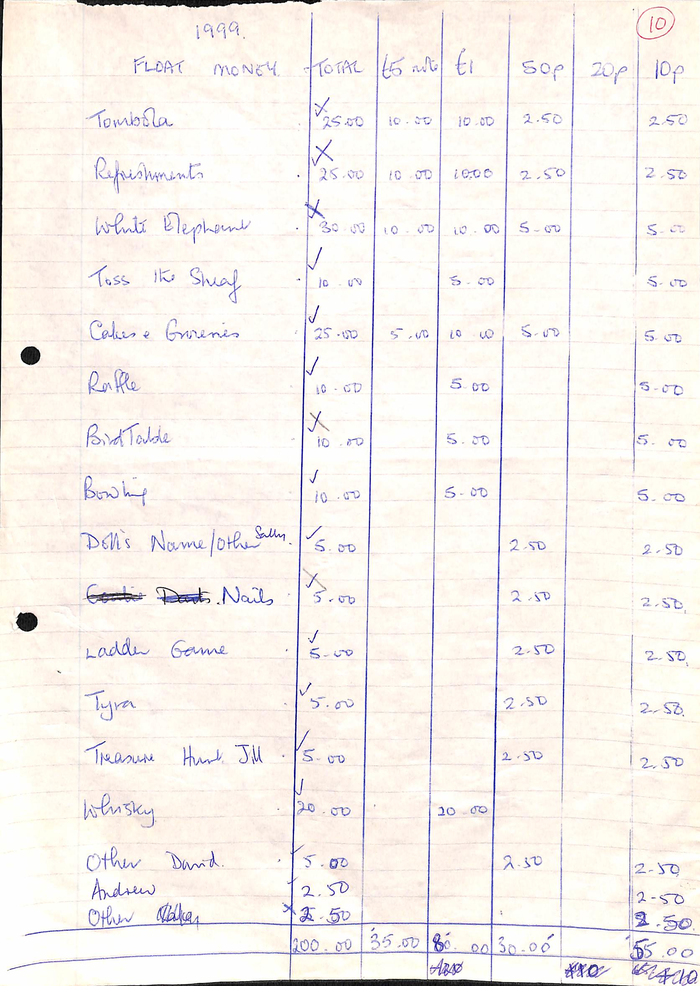 1999.
10
FLOAT MONEY. TOTAL £5 note £1 50p 20p 10p
Tombola 25.00 10.00 10.00 2.50 2.50
Refreshments 25.00 10.00 10.00 2.50 2.50
White Elephant 30.00 10.00 10.00 5.00 5.00
Toss the Sheaf 10.00 5.00 5.00
Cakes & Groceries 25.00 5.00 10.00 5.00 5.00
Raffle 10.00 5.00 5.00
Bird Table 10.00 5.00 5.00
Bowling 10.00 5.00 5.00
Doll's Name/Other Sally. 5.00 2.50 2.50
Darts. Nails 5.00 2.50 2.50
Ladder Game 5.00 2.50 2.50
Tyra 5.00 2.50 2.50
Treasure Hunt Jill 5.00 2.50 2.50
Whisky 20.00 20.00
Other David. 5.00 2.50 2.50
Andrew 2.50 2.50
Other 2.50 2.50
200.00 35.00 80.00 30.00 55.00